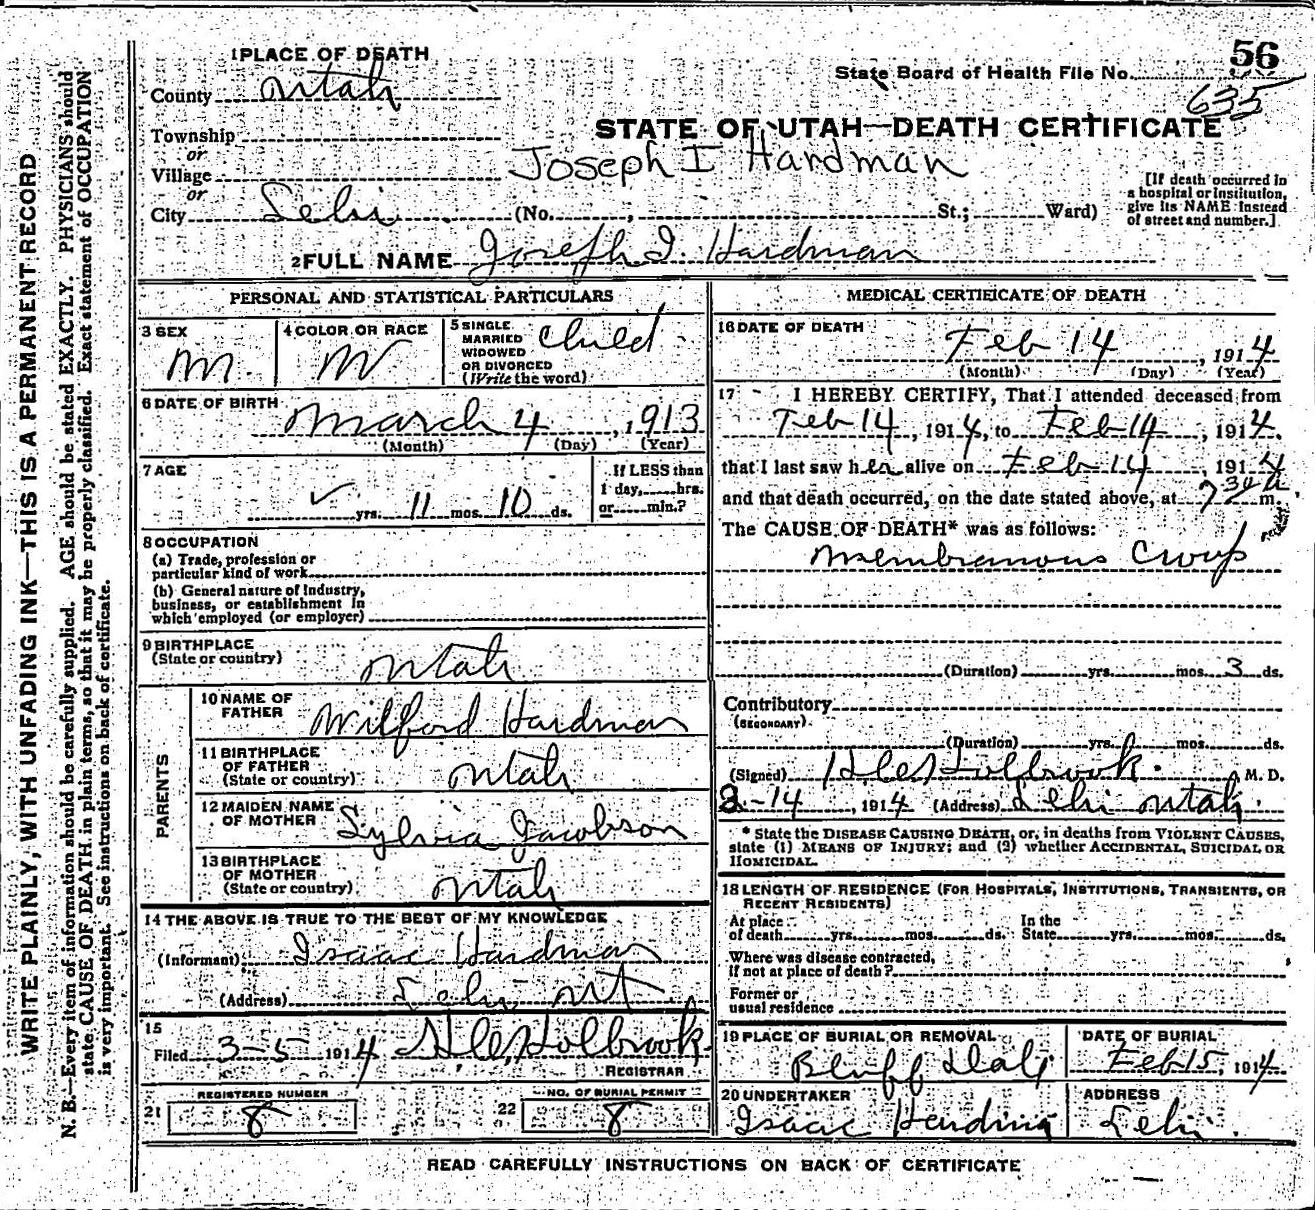 56
1 PLACE OF DEATH
State Board of Health File No.
635
County Utah
STATE OF UTAH—DEATH CERTIFICATE
Township
or
Village
Joseph I Hardman
or
City Lehi (No. , St.; Ward)
[If death occurred in
a hospital or institution,
give its NAME instead
of street and number.]
2 FULL NAME Joseph I. Hardman
PERSONAL AND STATISTICAL PARTICULARS
3 SEX
M
4 COLOR OR RACE
W
5 SINGLE
MARRIED
WIDOWED
OR DIVORCED
(Write the word)
Child
6 DATE OF BIRTH
March 4, 1913
(Month) (Day) (Year)
7 AGE
yrs. 11 mos. 10 ds.
If LESS than
1 day, hrs.
or min.?
8 OCCUPATION
(a) Trade, profession or
particular kind of work
(b) General nature of industry,
business, or establishment in
which employed (or employer)
9 BIRTHPLACE
(State or country)
Utah
PARENTS
10 NAME OF
FATHER
Wilford Hardman
11 BIRTHPLACE
OF FATHER
(State or country)
Utah
12 MAIDEN NAME
OF MOTHER
Sylvia Jacobson
13 BIRTHPLACE
OF MOTHER
(State or country)
Utah
14 THE ABOVE IS TRUE TO THE BEST OF MY KNOWLEDGE
(Informant) Isaac Hardman
(Address) Lehi Ut
15
Filed 3-5 1914 Holbrook
REGISTRAR
REGISTERED NUMBER
21 8
NO. OF BURIAL PERMIT
22 8
MEDICAL CERTIFICATE OF DEATH
16 DATE OF DEATH
Feb 14, 1914
(Month) (Day) (Year)
17 I HEREBY CERTIFY, That I attended deceased from
Feb 14, 1914, to Feb 14, 1914.
that I last saw h alive on Feb 14, 1914
and that death occurred, on the date stated above, at 7 30 a m.
The CAUSE OF DEATH* was as follows:
Membranous Croup
(Duration) yrs. mos. 3 ds.
Contributory
(SECONDARY)
(Duration) yrs. mos. ds.
(Signed) Holbrook. M. D.
2-14, 1914 (Address) Lehi Utah.
* State the DISEASE CAUSING DEATH, or, in deaths from VIOLENT CAUSES,
state (1) MEANS OF INJURY; and (2) whether ACCIDENTAL, SUICIDAL OR
HOMICIDAL.
18 LENGTH OF RESIDENCE (FOR HOSPITALS, INSTITUTIONS, TRANSIENTS, OR
RECENT RESIDENTS)
At place
of death yrs. mos. ds.
In the
State yrs. mos. ds.
Where was disease contracted,
if not at place of death?
Former or
usual residence
19 PLACE OF BURIAL OR REMOVAL
Bluff Dale
DATE OF BURIAL
Feb 15, 1914
20 UNDERTAKER
Isaac
ADDRESS
Lehi.
READ CAREFULLY INSTRUCTIONS ON BACK OF CERTIFICATE
WRITE PLAINLY, WITH UNFADING INK—THIS IS A PERMANENT RECORD
N. B.—Every item of information should be carefully supplied. AGE should be stated EXACTLY. PHYSICIANS should
state CAUSE OF DEATH in plain terms, so that it may be properly classified. Exact statement of OCCUPATION
is very important. See instructions on back of certificate.